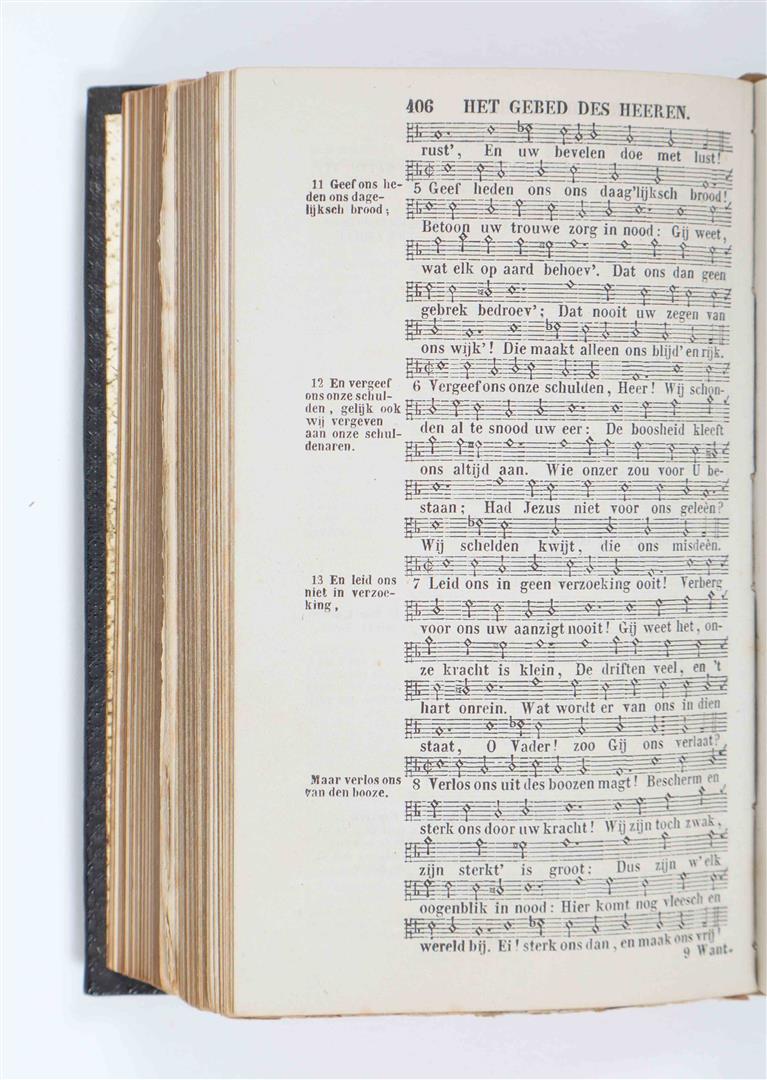 406 HET GEBED DES HEEREN.
rust', En uw bevelen doe met lust!
11 Geef ons he-
den ons dage-
lijksch brood;
5 Geef heden ons ons daag'lijksch brood!
Betoon uw trouwe zorg in nood: Gij weet,
wat elk op aard behoev'. Dat ons dan geen
gebrek bedroev'; Dat nooit uw zegen van
ons wijk'! Die maakt alleen ons blijd' en rijk.
12 En vergeef
ons onze schul-
den, gelijk ook
wij vergeven
aan onze schul-
denaren.
6 Vergeef ons onze schulden, Heer! Wij schon-
den al te snood uw eer: De boosheid kleeft
ons altijd aan. Wie onzer zou voor U be-
staan; Had Jezus niet voor ons geleên?
Wij schelden kwijt, die ons misdeên.
13 En leid ons
niet in verzoe-
king,
7 Leid ons in geen verzoeking ooit! Verberg
voor ons uw aanzigt nooit! Gij weet het, on-
ze kracht is klein, De driften veel, en 't
hart onrein. Wat wordt er van ons in dien
staat, O Vader! zoo Gij ons verlaat?
Maar verlos ons
van den booze.
8 Verlos ons uit des boozen magt! Bescherm en
sterk ons door uw kracht! Wij zijn toch zwak,
zijn sterkt' is groot: Dus zijn w'elk
oogenblik in nood: Hier komt nog vleesch en
wereld bij. Ei! sterk ons dan, en maak ons vrij!
9 Want.